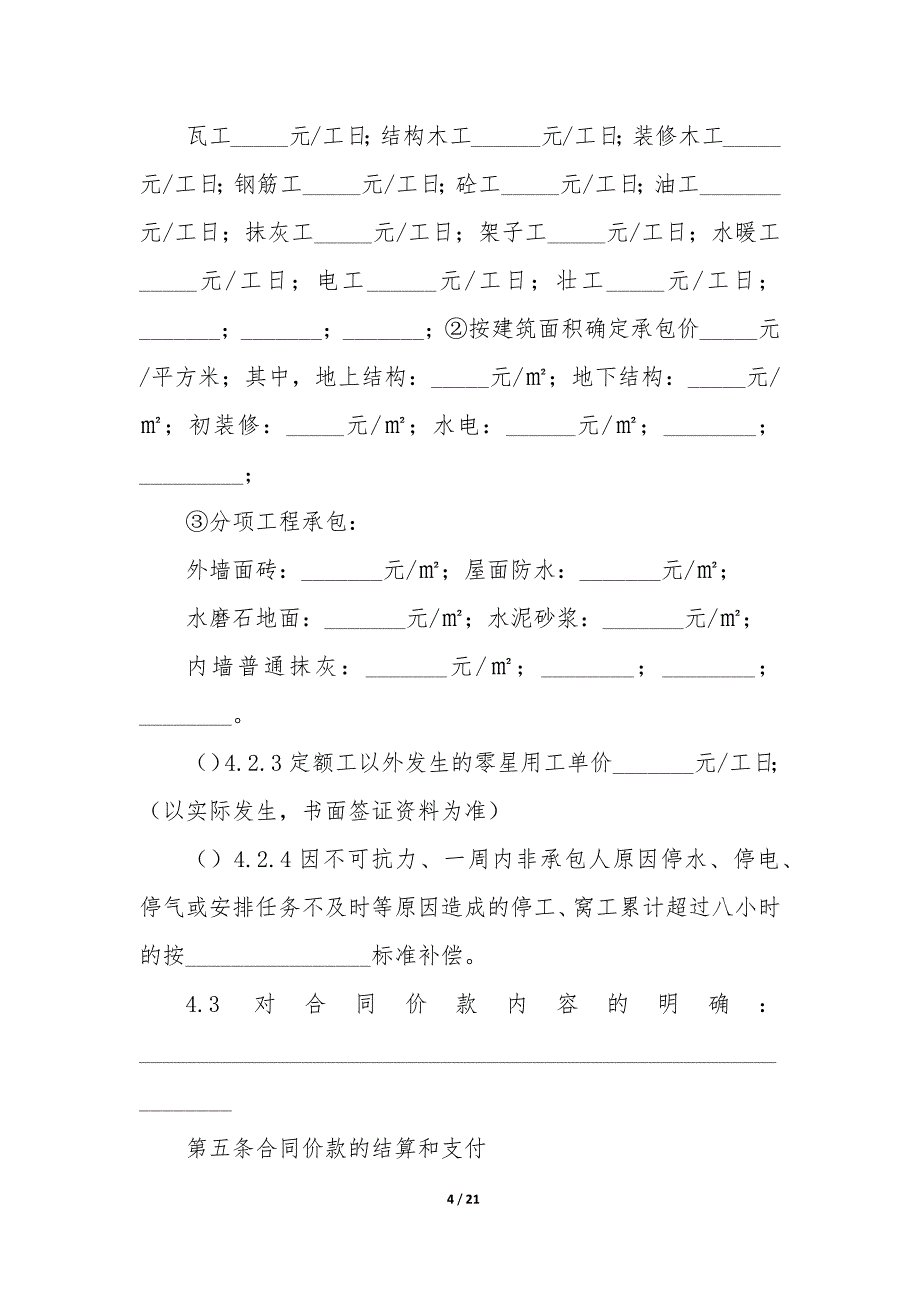 瓦工_____元/工日；结构木工______元/工日；装修木工_____
元/工日；钢筋工_____元/工日；砼工_____元/工日；油工_______
元/工日；抹灰工_____元/工日；架子工_____元/工日；水暖工
_____元/工日；电工______元/工日；壮工_____元/工日；
_______；_______；_______；②按建筑面积确定承包价_____元
/平方米；其中，地上结构：_____元/㎡；地下结构：_____元/
㎡；初装修：_____元/㎡；水电：______元/㎡；________；
_________；
③分项工程承包：
外墙面砖：_______元/㎡；屋面防水：_______元/㎡；
水磨石地面：_______元/㎡；水泥砂浆：_______元/㎡；
内墙普通抹灰：_______元/㎡；________；________；
________。
（）4.2.3定额工以外发生的零星用工单价_______元/工日；
（以实际发生，书面签证资料为准）
（）4.2.4因不可抗力、一周内非承包人原因停水、停电、
停气或安排任务不及时等原因造成的停工、窝工累计超过八小时
的按________________标准补偿。
4.3对合同价款内容的明确：
_______________________________________________________
________
第五条合同价款的结算和支付
4 / 21